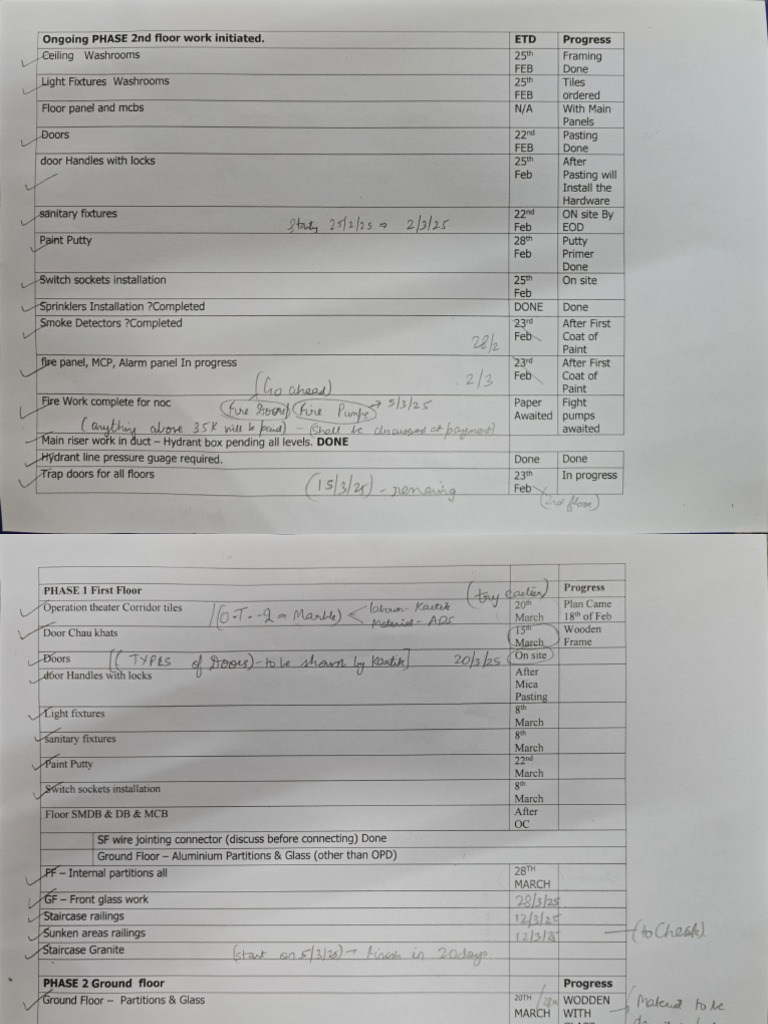 Ongoing PHASE 2nd floor work initiated. ETD Progress
Ceiling Washrooms 25th FEB Framing Done
Light Fixtures Washrooms 25th FEB Tiles ordered
Floor panel and mcbs N/A With Main Panels
Doors 22nd FEB Pasting Done
door Handles with locks 25th Feb After Pasting will Install the Hardware
sanitary fixtures 25/2/25 2/3/25 22nd Feb ON site By EOD
Paint Putty 28th Feb Putty Primer Done
Switch sockets installation 25th Feb On site
Sprinklers Installation ?Completed DONE Done
Smoke Detectors ?Completed 28/2 23rd Feb After First Coat of Paint
fire panel, MCP, Alarm panel In progress 2/3 23rd Feb After First Coat of Paint
(Go ahead)
Fire Work complete for noc (Fire Doors) (Fire Pumps) → 5/3/25 Paper Awaited Fight pumps awaited
(anything above 35K will be paid) - (Shall be discussed at payment)
Main riser work in duct – Hydrant box pending all levels. DONE
Hydrant line pressure guage required. Done Done
Trap doors for all floors (15/3/25) - remaining 23th Feb In progress
(2nd floor)
PHASE 1 First Floor (try earlier) Progress
Operation theater Corridor tiles (O.T.-2 = Marble) Kartik Material - ADS 20th March Plan Came 18th of Feb
Door Chau khats 15th March Wooden Frame
Doors [(TYPES of Doors) - to be shown by Kartik] 20/3/25 On site
door Handles with locks After Mica Pasting
Light fixtures 8th March
sanitary fixtures 8th March
Paint Putty 22nd March
Switch sockets installation 8th March
Floor SMDB & DB & MCB After OC
SF wire jointing connector (discuss before connecting) Done
Ground Floor – Aluminium Partitions & Glass (other than OPD)
FF – Internal partitions all 28TH MARCH
GF – Front glass work 28/3/25
Staircase railings 12/3/25
Sunken areas railings 12/3/25 (to Check)
Staircase Granite (start on 5/3/25) - finish in 20 days
PHASE 2 Ground floor Progress
Ground Floor – Partitions & Glass 20TH MARCH WODDEN WITH to be